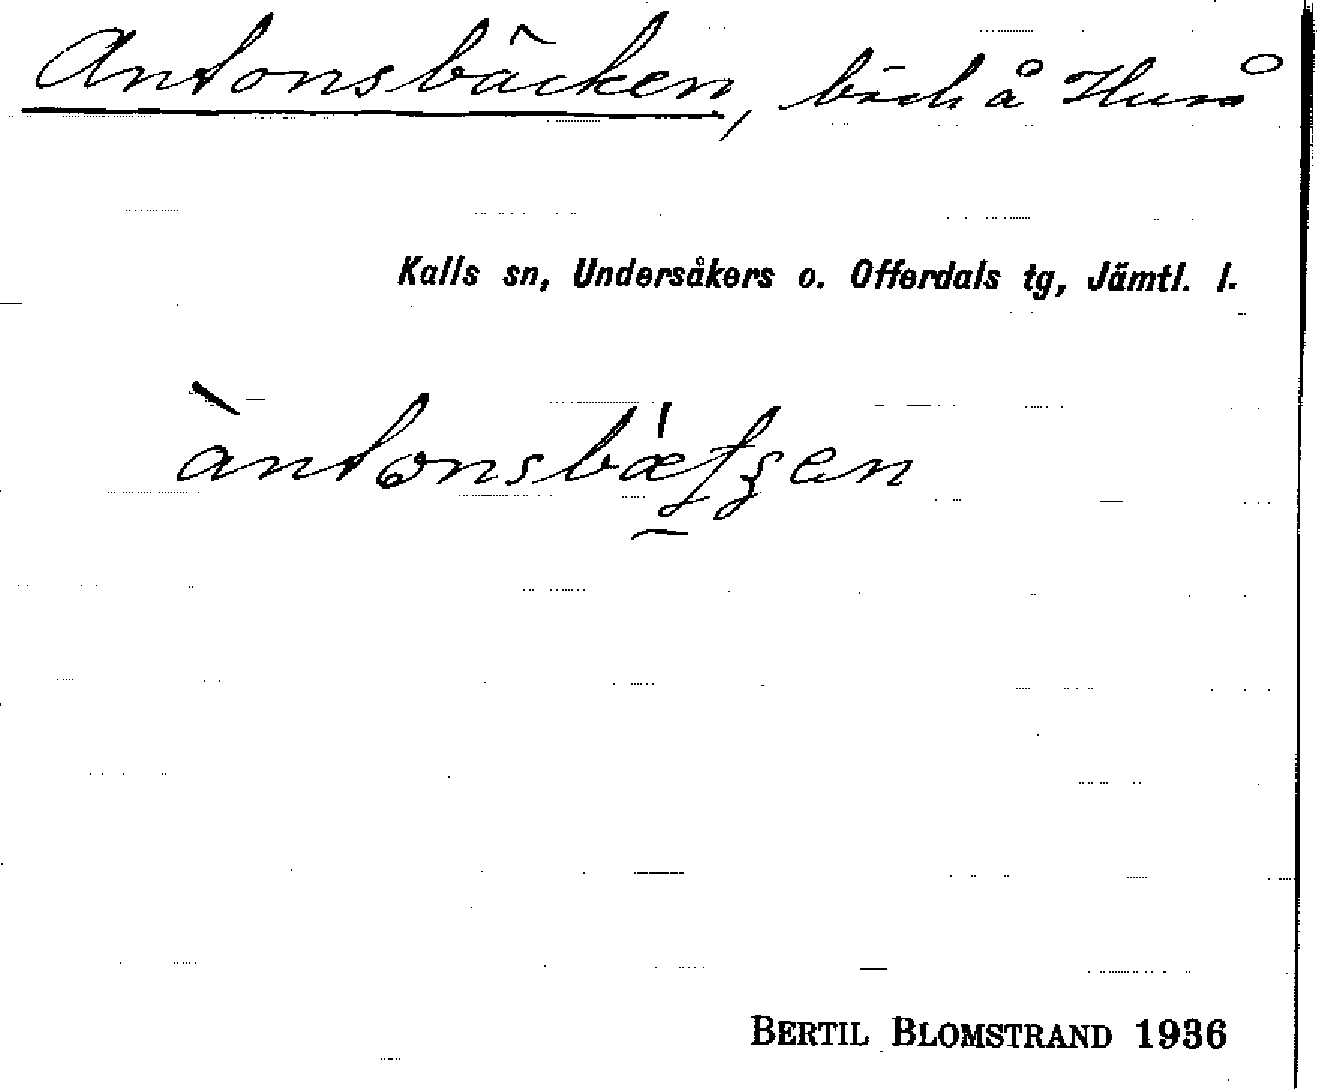 Antonsbäcken, bäck å Huså
Kalls sn, Undersåkers o. Offerdals tg, Jämtl. l.
BERTIL BLOMSTRAND 1936